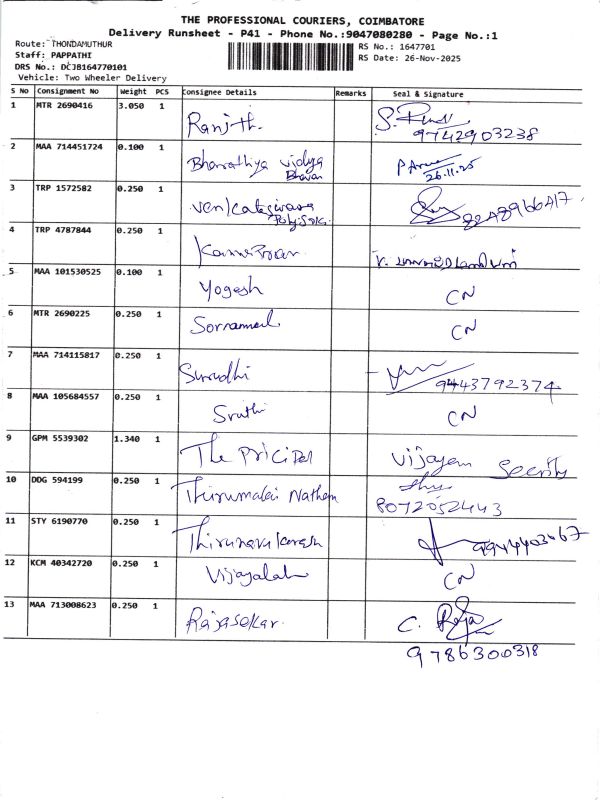 THE PROFESSIONAL COURIERS, COIMBATORE
Delivery Runsheet - P41 - Phone No.:9047080280 - Page No.:1
Route: THONDAMUTHUR
Staff: PAPPATHI
DRS No.: DCJB164770101
Vehicle: Two Wheeler Delivery
RS No.: 1647701
RS Date: 26-Nov-2025
S No Consignment No Weight PCS Consignee Details Remarks Seal & Signature
1 MTR 2690416 3.050 1 Ranjith. S.
9742903238
2 MAA 714451724 0.100 1 Bharathiya vidya
Bhavan
26.11.25
3 TRP 1572582 0.250 1 Venkateswara
4 TRP 4787844 0.250 1
5 MAA 101530525 0.100 1 Yogesh CN
6 MTR 2690225 0.250 1 CN
7 MAA 714115817 0.250 1 Surudhi
9443792374
8 MAA 105684557 0.250 1 Sruthi CN
9 GPM 5539302 1.340 1 The Vijayam
10 DDG 594199 0.250 1 Thirumalai Nathan
8072052443
11 STY 6190770 0.250 1 9944403467
12 KCM 40342720 0.250 1 CN
13 MAA 713008623 0.250 1 Rajasekar. C. Raja
9786300318